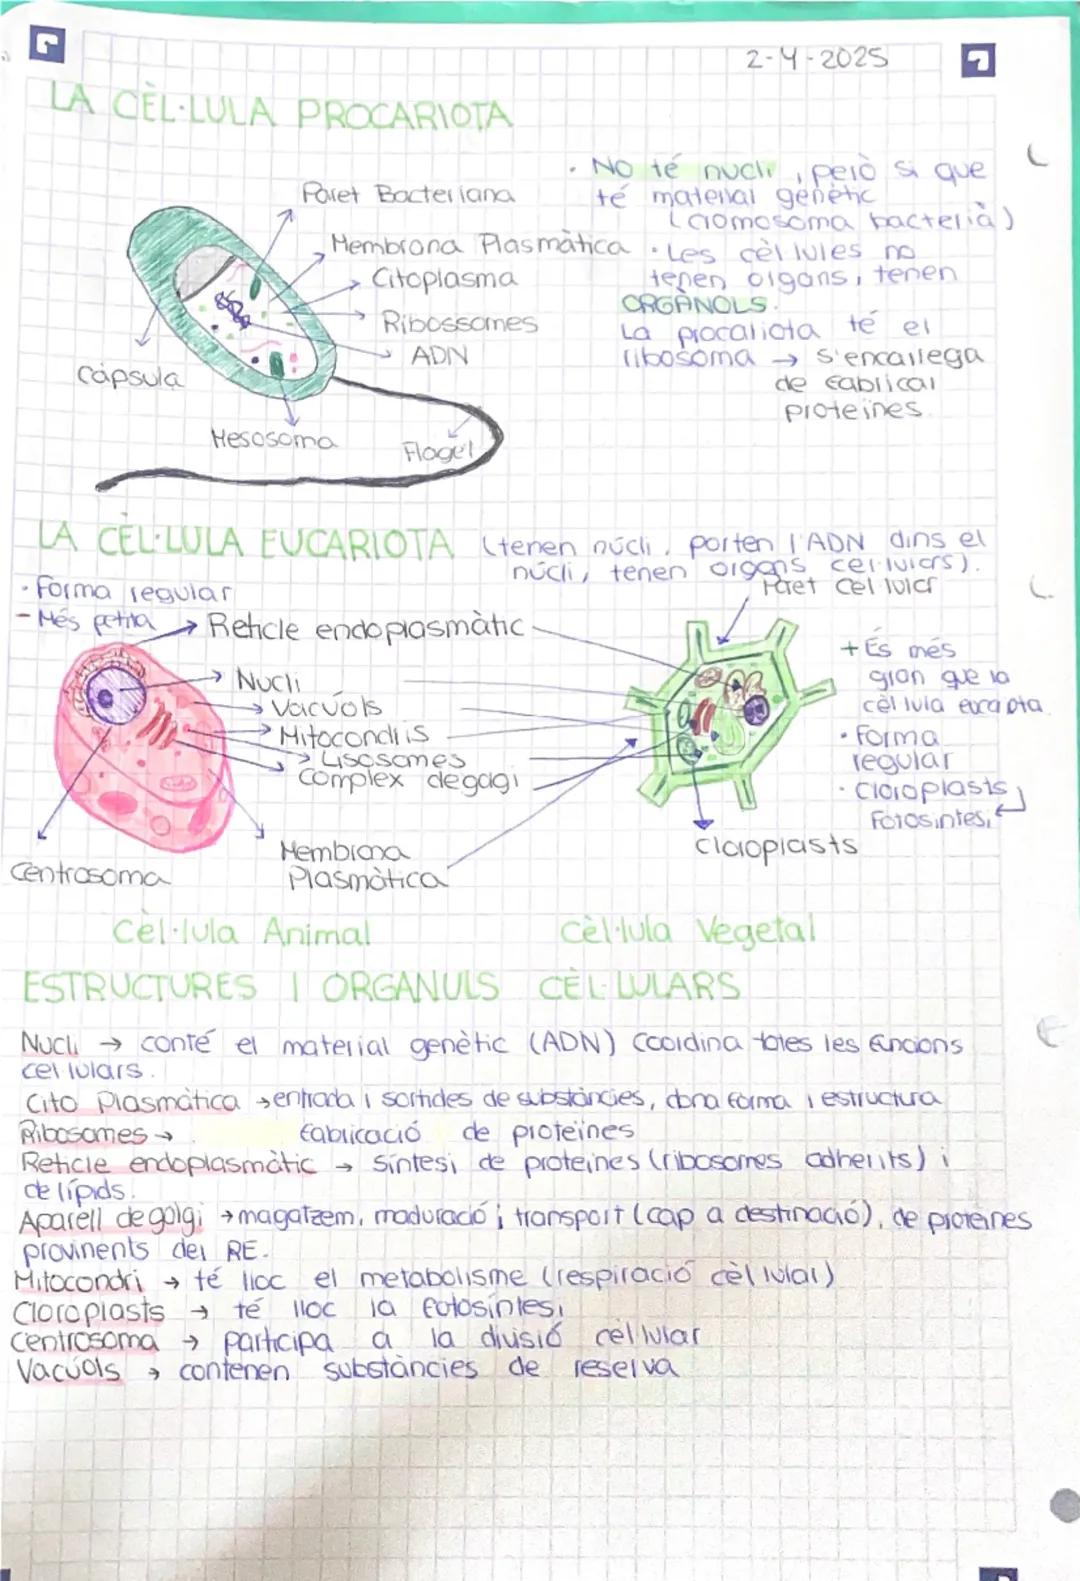 2-4-2025
LA CÈL·LULA PROCARIOTA
· No té nucli, però si que
té material genètic
(cromosoma bacterià)
· Les cèl·lules no
tenen organs, tenen
ORGÀNOLS.
La procariota té el
ribosoma → s'encarrega
de fabricar
proteïnes.
Paret Bacteriana
Membrana Plasmàtica
Citoplasma
Ribossomes
ADN
Càpsula
Mesosoma
Flagel
LA CÈL·LULA EUCARIOTA (tenen núcli, porten l'ADN dins el
núcli, tenen organs cel·lulars).
· Forma regular
- Més petita
Reticle endoplasmàtic
Nucli
Vacúols
Mitocondris
Lisosomes
Complex degagi
Membrana
Plasmàtica
Centrosoma
Paret cel·lular
+ És més
gran que la
cèl·lula eucariota
· Forma
regular
· Cloroplasts
Fotosintesi
Cloroplasts
Cèl·lula Animal
Cèl·lula Vegetal
ESTRUCTURES I ORGANULS CÈL·LULARS
Nucli → conté el material genètic (ADN) coordina totes les funcions
cel·lulars.
Cito Plasmàtica → entrada i sortides de substàncies, dona forma i estructura
Ribosomes → fabricació de proteïnes
Reticle endoplasmàtic → síntesi de proteïnes (ribosomes adherits) i
de lípids.
Aparell de golgi → magatzem, maduració i transport (cap a destinació), de proteïnes
provinents del RE.
Mitocondri → té lloc el metabolisme (respiració cèl·lular)
Cloroplasts → té lloc la fotosíntesi
Centrosoma → participa a la divisió cel·lular
Vacúols → contenen substàncies de reserva